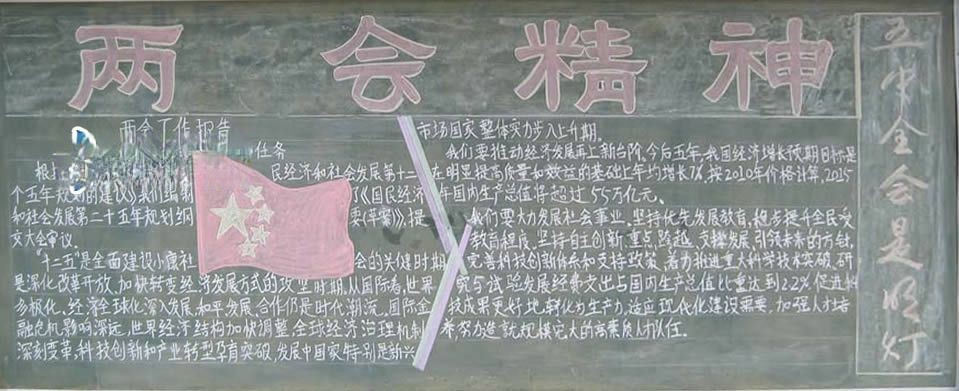 两会精神
两会工作报告
任务
民经济和社会发展第十二
个五年规划的建议》我们编制
了《国民经济
和社会发展第二十五年规划纲
要(草案)》,提
交大会审议。
"十二五"是全面建设小康社
会的关键时期
是深化改革开放、加快转变经济发展方式的攻坚时期。从国际看,世界
多极化、经济全球化深入发展,和平发展合作仍是时代潮流。国际金
融危机影响深远,世界经济结构加快调整,全球经济治理机制
深刻变革,科技创新和产业转型孕育突破,发展中国家特别是新兴
市场国家整体实力步入上升期。
我们要推动经济发展再上新台阶。今后五年,我国经济增长预期目标是
在明显提高质量和效益的基础上年均增长7%。按2010年价格计算,2015
年国内生产总值将超过55万亿元。
我们要大力发展社会事业。坚持优先发展教育,稳步提升全民受
教育程度。坚持自主创新、重点跨越、支撑发展、引领未来的方针,
完善科技创新体系和支持政策,着力推进重大科学技术突破。研
究与试验发展经费支出占国内生产总值比重达到2.2%,促进科
技成果更好地转化为生产力。适应现代化建设需要,加强人才培
养,努力造就规模宏大的高素质人才队伍。
五中全会是明灯